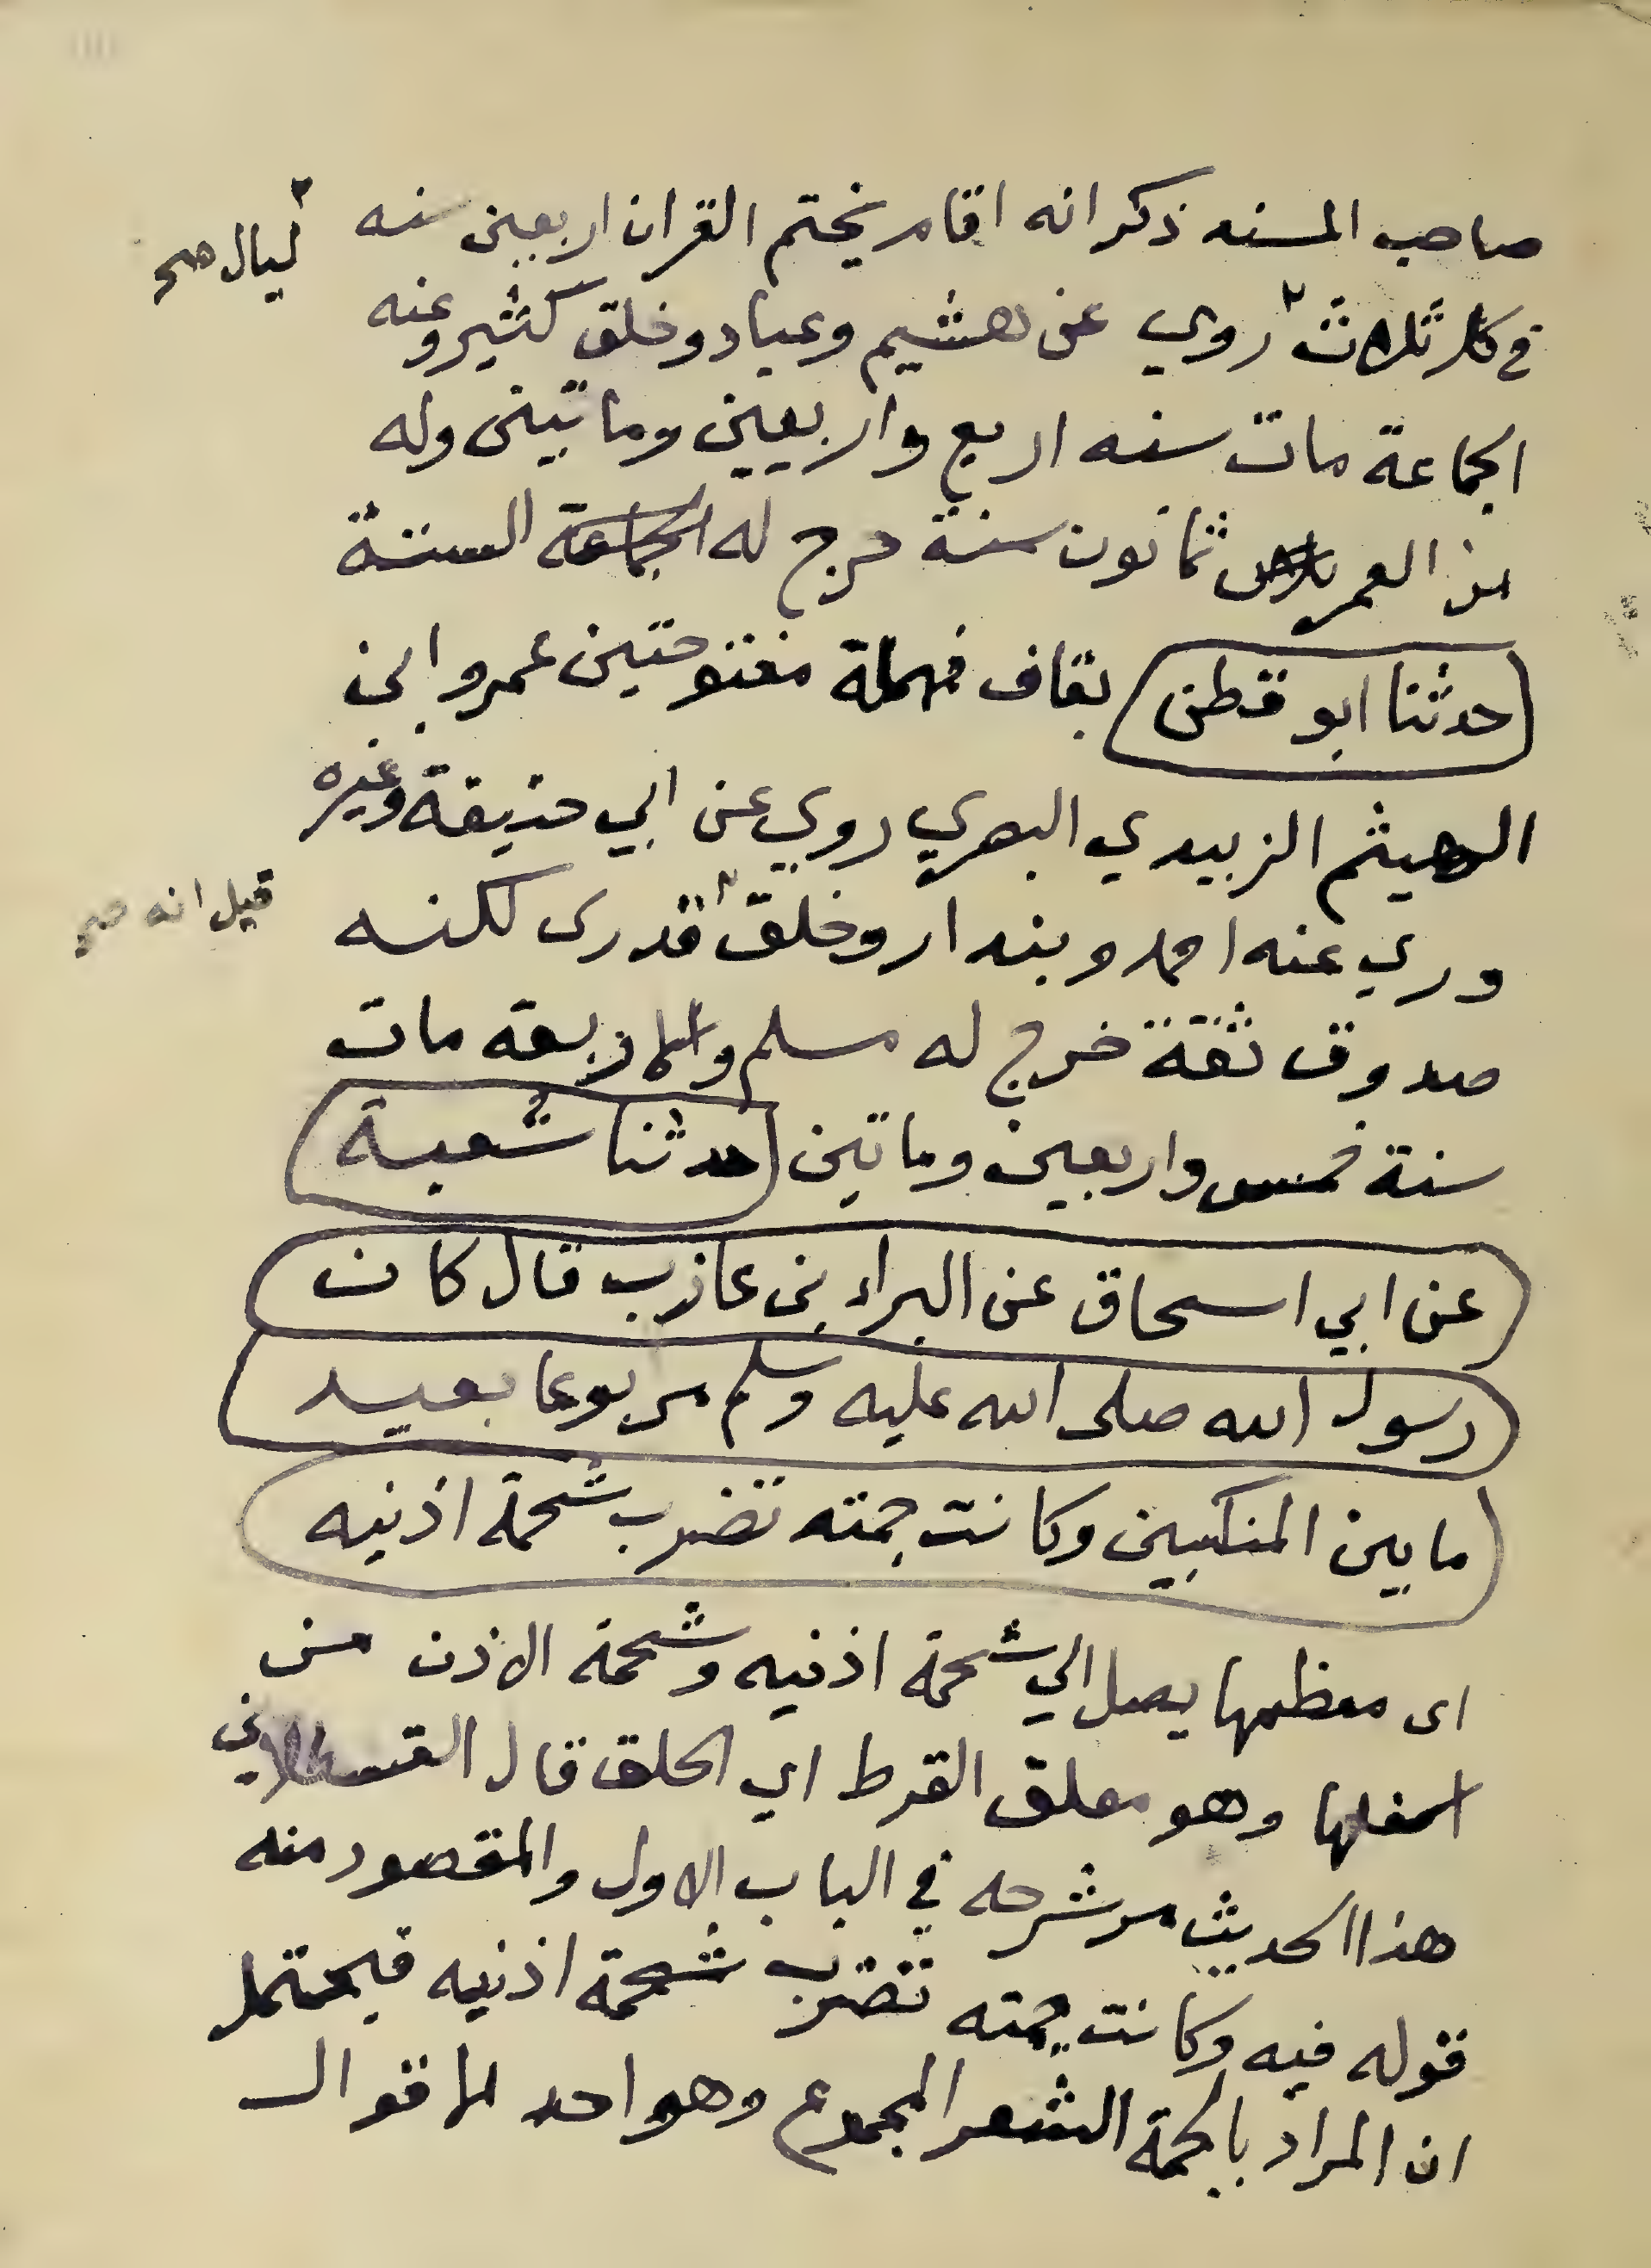 صاحب المسند ذكر انه اقام يختم القران اربعين سنه
ليال صح
في كل ثلاث روي عن هشيم وعباد وخلق كثير وعنه
الجماعة مات سنه اربع واربعين وماتين وله
من العمر ثمانون سنة خرج له الجماعة الستة
حدثنا ابو قطن بقاف فمهملة مفتوحتين عمرو ابن
الهيثم الزبيدي البصري روي عن ابي حنيفة وغيره
وري عنه احمد وبندار وخلق قدرى لكنه
قيل انه صح
صدوق ثقة خرج له مسلم والاربعة مات
سنة خمس واربعين وماتين حدثنا شعبة
عن ابي اسحاق عن البراء بن عازب قال كان
رسول الله صلى الله عليه وسلم مربوعا بعيد
ما بين المنكبين وكانت جمته تضرب شحمة اذنيه
اى معظمها يصل الي شحمة اذنيه وشحمة الاذن من
اسفلها وهو معلق القرط اي الحلق قال القسطلاني
هذا الحديث مر شرحه في الباب الاول والمقصود منه
قوله فيه وكانت جمته تضرب شحمة اذنيه فيحتمل
ان المراد بالجمة الشعر المجموع وهو احد الاقوال